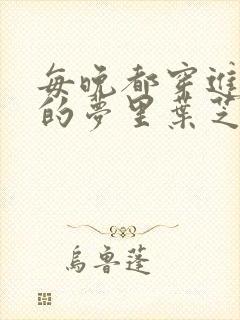 每晚都穿進
的夢里葉芝
烏魯蓬